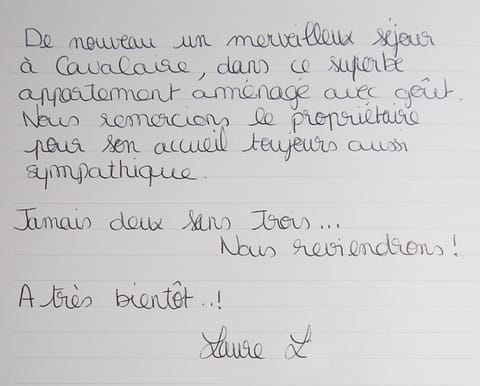 De nouveau un merveilleux séjour
à Cavalaire, dans ce superbe
appartement aménagé avec goût.
Nous remercions le propriétaire
pour son accueil toujours aussi
sympathique.
Jamais deux sans Trois...
Nous reviendrons !
A très bientôt..!
Laure L